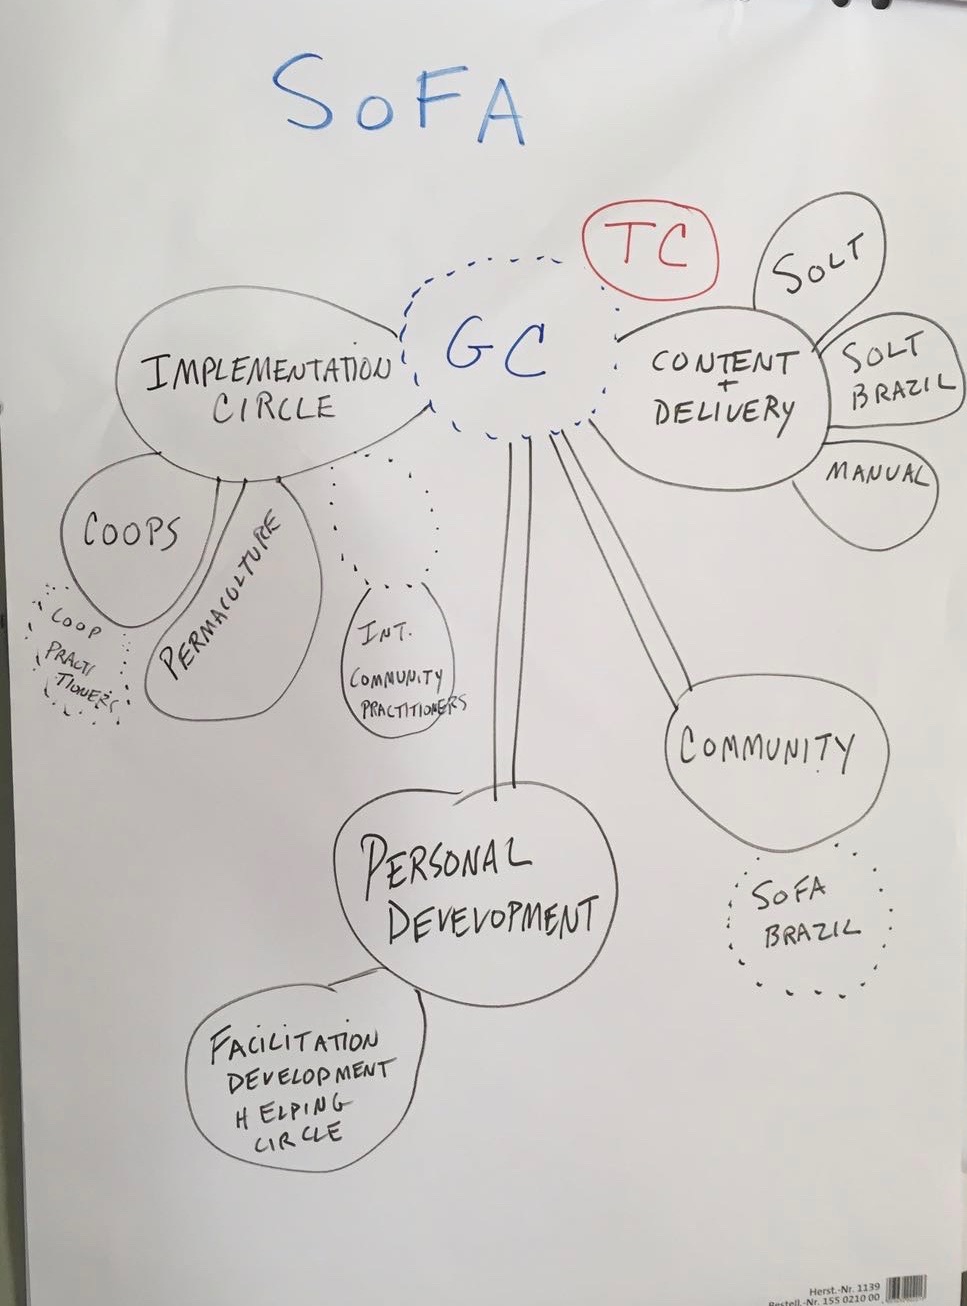 SoFA
TC
GC
SOLT
SOLT
BRAZIL
IMPLEMENTATION
CIRCLE
CONTENT
+
DELIVERY
MANUAL
COOPS
PERMACULTURE
COOP
PRACTI
TIONERS
INT.
COMMUNITY
PRACTITIONERS
COMMUNITY
PERSONAL
DEVELOPMENT
SOFA
BRAZIL
FACILITATION
DEVELOPMENT
HELPING
CIRCLE
Herst.-Nr. 1139
Bestell.-Nr. 155 0210 00